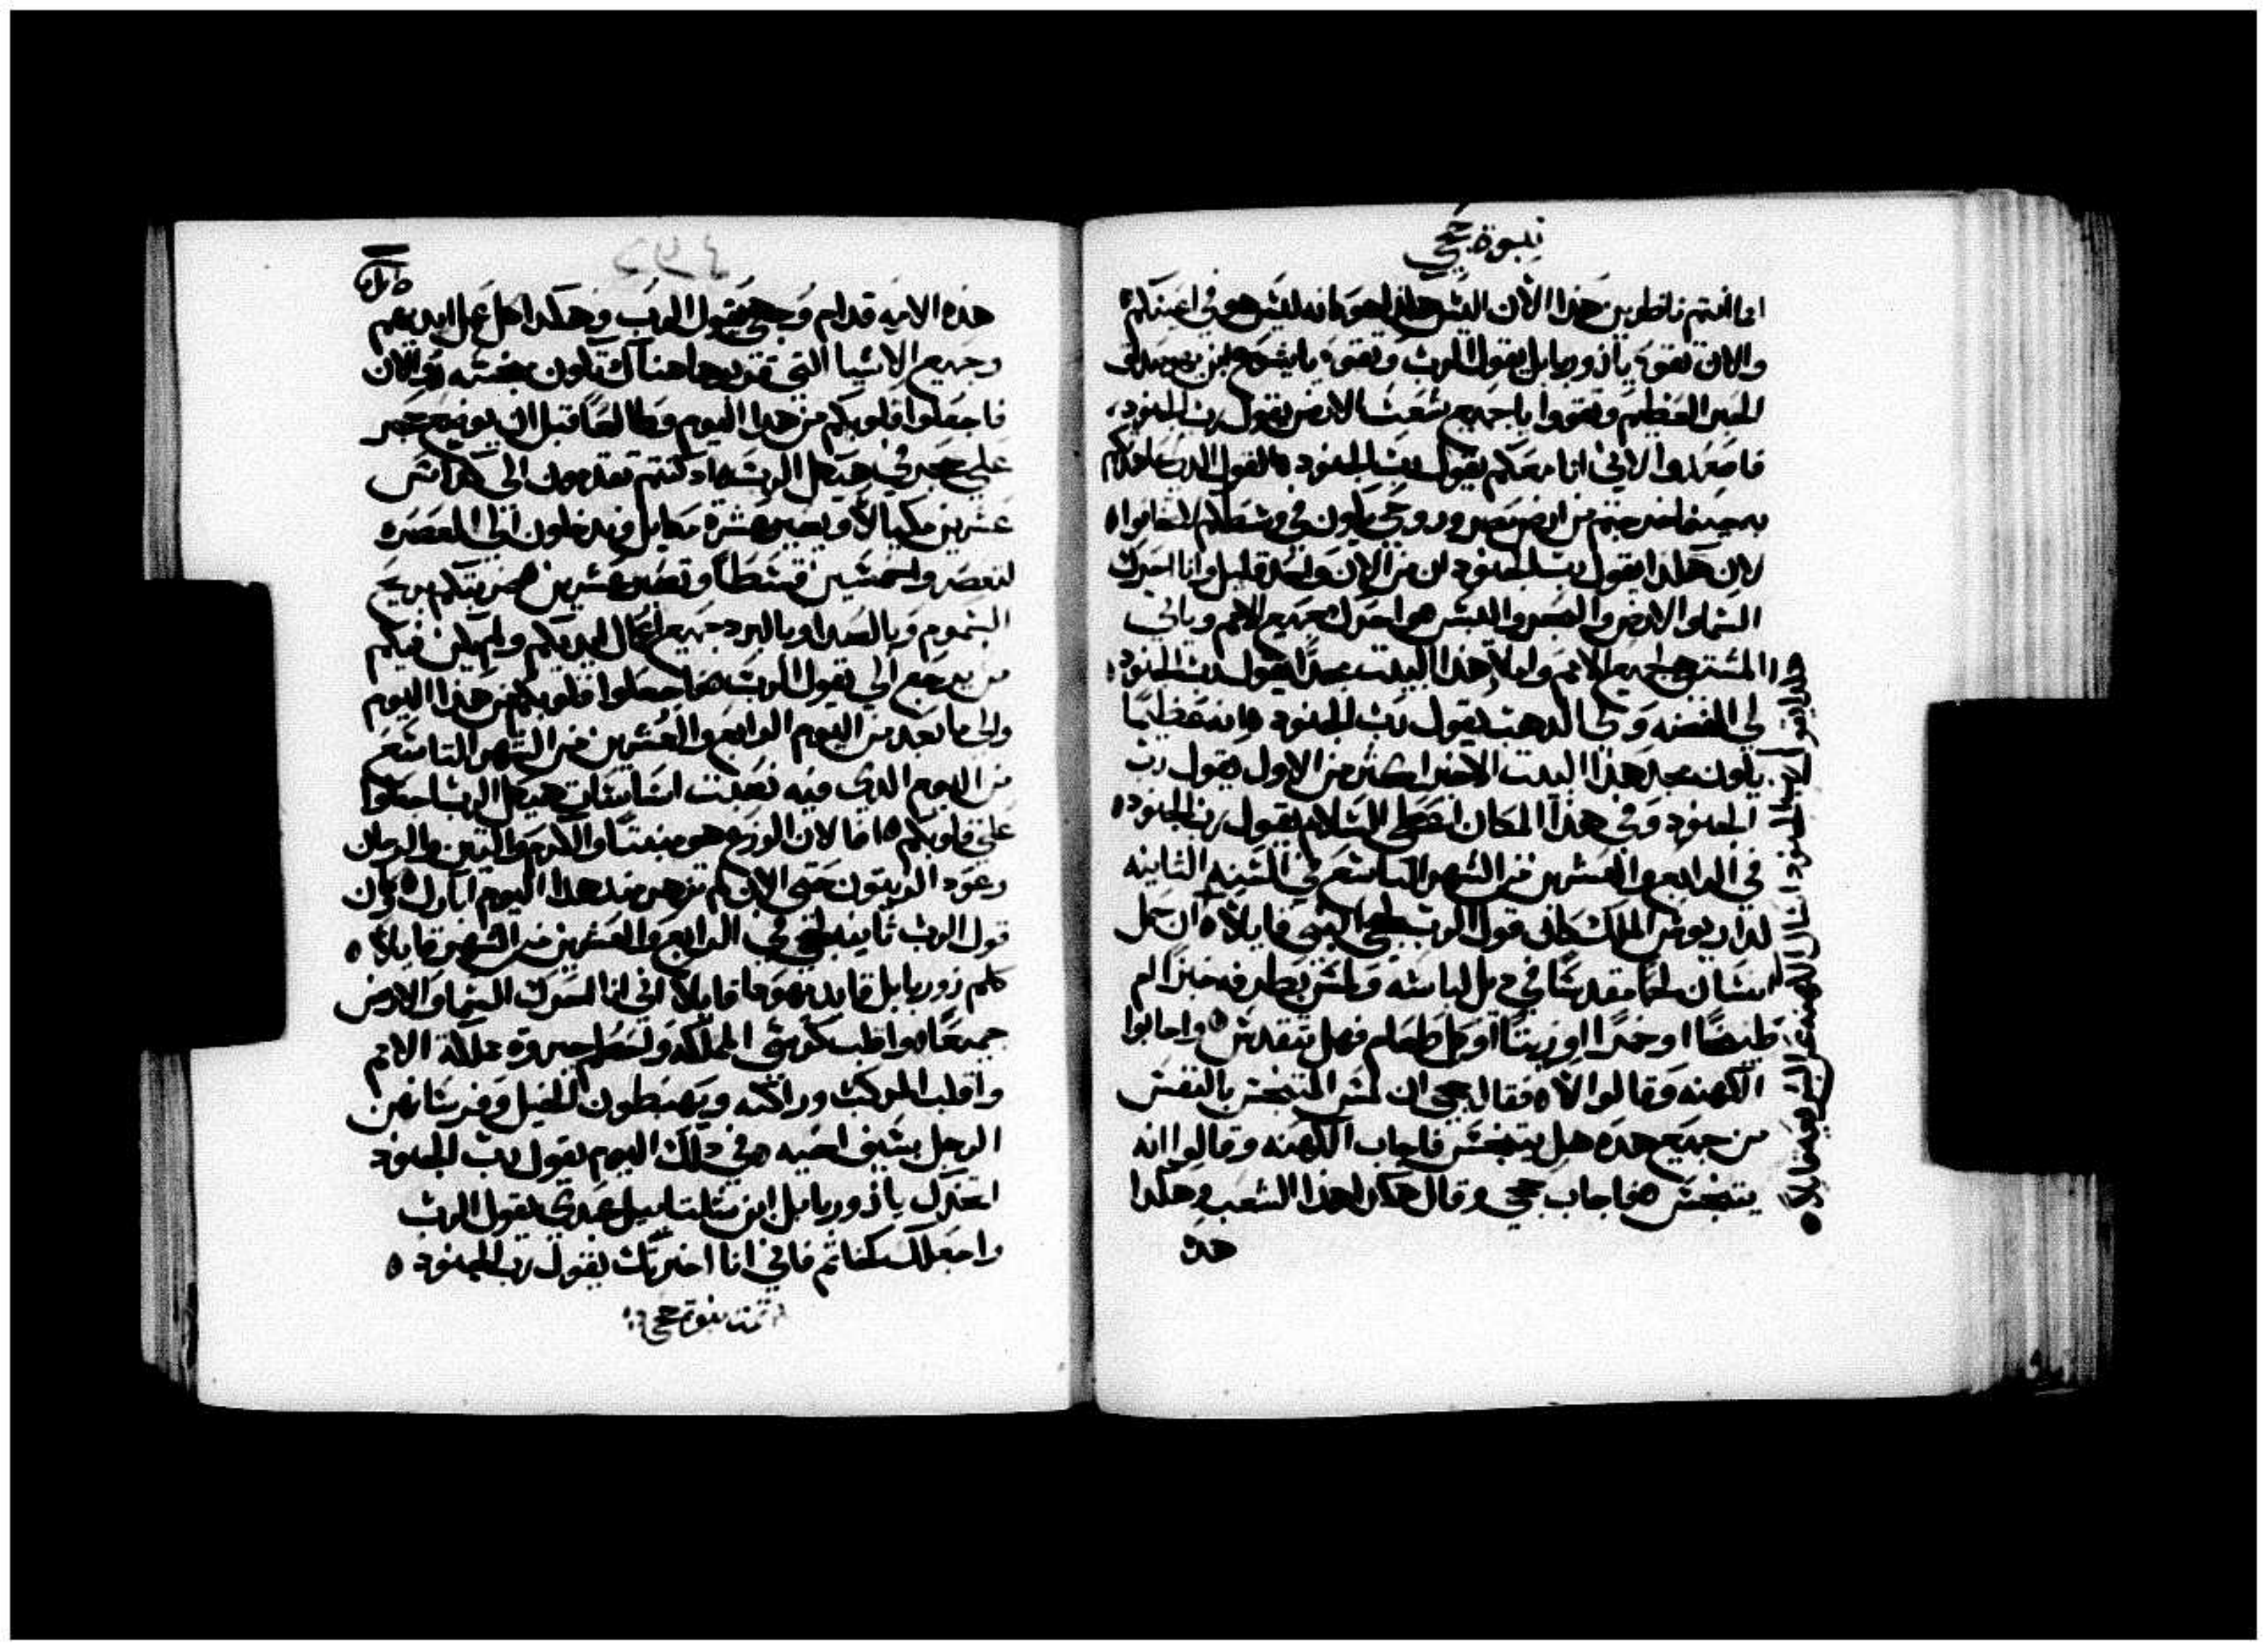 نبوة حجي
اما انتم ناظرين هذا الان اليس هكذا هو كانه ليس هو في اعينكم
والان تقوى يا زوربابل يقول الرب وتقوى يا يشوع ابن يهوصداق
الحبر العظيم وتقووا يا جميع شعب الارض يقول رب الجنود
فاصعدوا لاني انا معكم يقول رب الجنود القول الذي عاهدتكم
به حينما خرجتم من ارض مصر وروحي يكون في وسطكم لا تخافوا
لان هكذا يقول رب الجنود ان من الان واحد قليل وانا احرك
السما والارض والبحر واليبس واحرك جميع الامم وياتي
المشتهى لجميع الامم واملا هذا البيت مجدا يقول رب الجنود
لي الفضه ولي الدهب يقول رب الجنود عظيما
يكون مجد هذا البيت الاخير اكثر من الاول يقول رب
الجنود وفي هذا المكان اعطي السلام يقول رب الجنود
في الرابع والعشرين من الشهر التاسع في السنه الثانيه
لداريوس الملك كان قول الرب لحجي النبي قايلا ان حمل
هكذا يقول رب الجنود اسال الكهنه عن الشريعه قايلا
انسان لحما مقدسا في ديل لباسه ولمس بطرفه خبزا ام
طبيخا او خمرا او زيتا او كل طعام فهل يتقدس واجابوا
الكهنه وقالوا لا فقال حجي ان لمس المتنجس بالنفس
من جميع هده هل يتنجس فاجاب الكهنه وقالوا انه
يتنجس فاجاب حجي وقال هكدا هذا الشعب وهكدا
هده
هذه الامه قدام وجهي يقول الرب وهكدا كل عمل ايديهم
وجميع الاشيا التي قدموها هناك تكون نجسه والان
فاجعلوا قلوبكم من هدا اليوم وطالعا قبل ان يوضع حجر
على حجر في هيكل الرب اد كنتم تقدمون الى كداس
عشرين مكيالا ويصير عشرة مكايل وتدخلون الى المعصره
لتعصروا خمسين قسطا وتصير عشرين ضربتكم بريح
السموم وبالصدا وبالبرد جميع اعمال ايديكم ولم يكن فيكم
من يرجع الي يقول الرب فاجعلوا قلوبكم من هذا اليوم
والى ما بعد من اليوم الرابع والعشرين من الشهر التاسع
من اليوم الدي فيه اساسات هيكل الرب اجعلوا
على قلوبكم اما لان الزرع هو والكرم والتين والرمان
وعود الزيتون حتى الان لم تزهر مند هدا اليوم ابارك وكان
قول الرب ثانيه لحجي في الرابع والعشرين من الشهر قايلا
كلم زوربابل قايد يهودا قايلا اني انا احرك السما والارض
جميعا واقلب كرسي المملكه واسحق جبروة مملكة الامم
واقلب المركب وراكبه ويهبطون الخيل وفرسانهن
الرجل بسيف اخيه في دلك اليوم يقول رب الجنود
اتخدك يا زوربابل ابن شلتاييل عبدي يقول الرب
واجعلك كخاتم فاني انا اخترتك يقول رب الجنود
تمت نبوة حجي